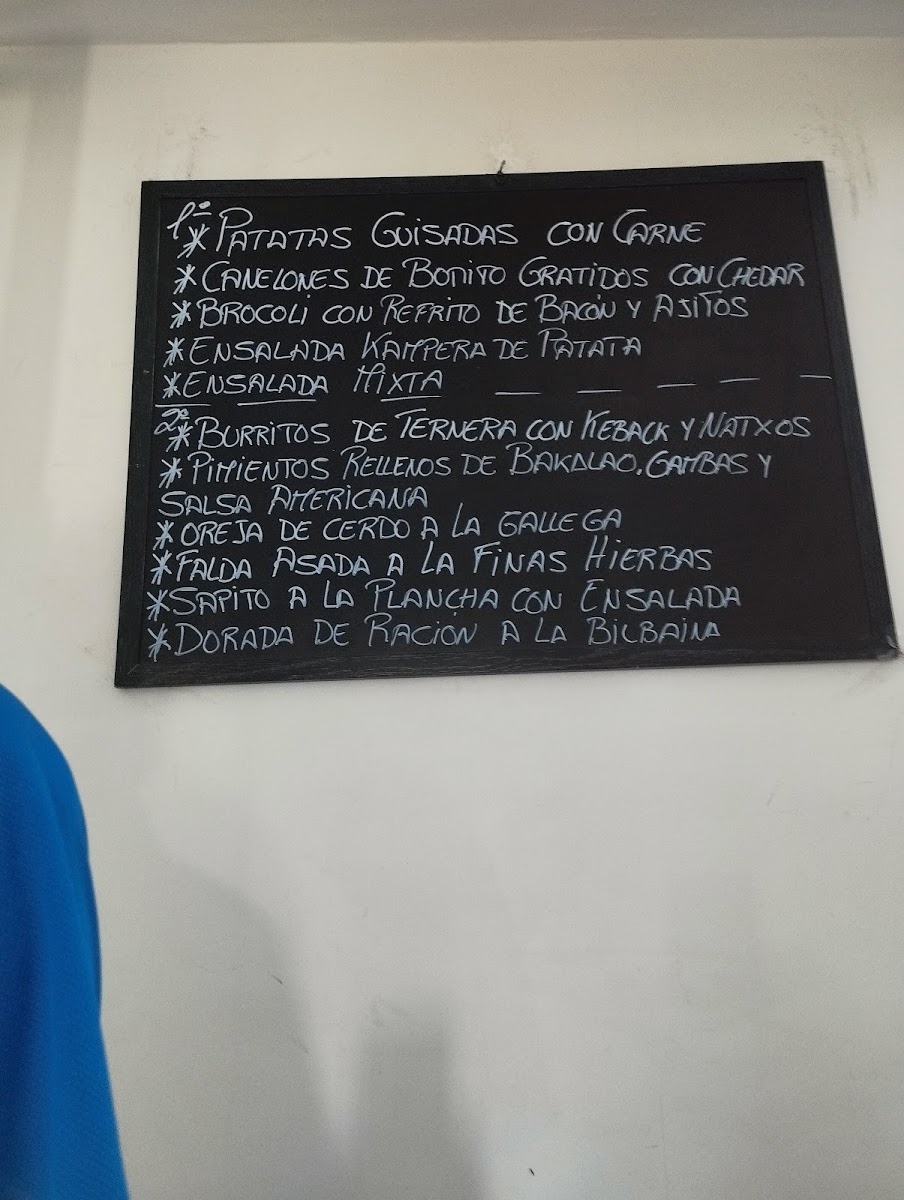 1º
* PATATAS GUISADAS CON CARNE
* CANELONES DE BONITO GRATIDOS CON CHEDAR
* BROCOLI CON REFRITO DE BACÓN Y AJITOS
* ENSALADA KAMPERA DE PATATA
* ENSALADA MIXTA
2º
* BURRITOS DE TERNERA CON KEBACK Y NATXOS
* PIMIENTOS RELLENOS DE BAKALAO, GAMBAS Y
SALSA AMERICANA
* OREJA DE CERDO A LA GALLEGA
* FALDA ASADA A LA FINAS HIERBAS
* SAPITO A LA PLANCHA CON ENSALADA
* DORADA DE RACIÓN A LA BILBAINA